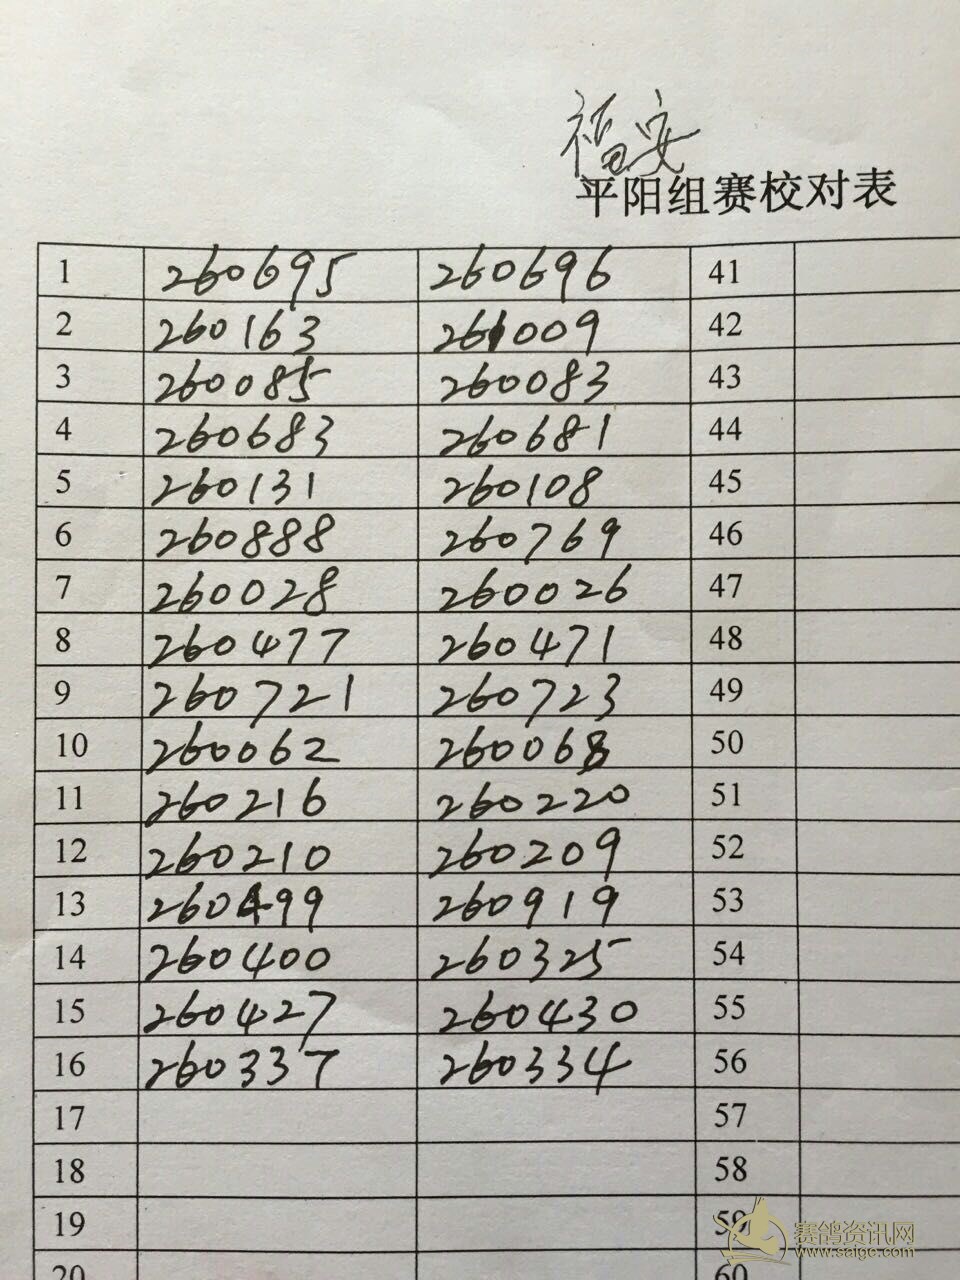 福安
平阳组赛校对表
1 260695 260696 41
2 260163 261009 42
3 260085 260083 43
4 260683 260681 44
5 260131 260108 45
6 260888 260769 46
7 260028 260026 47
8 260477 260471 48
9 260721 260723 49
10 260062 260068 50
11 260216 260220 51
12 260210 260209 52
13 260499 260919 53
14 260400 260325 54
15 260427 260430 55
16 260337 260334 56
17 57
18 58
19 59
20 60
赛鸽资讯网
www.saige.com